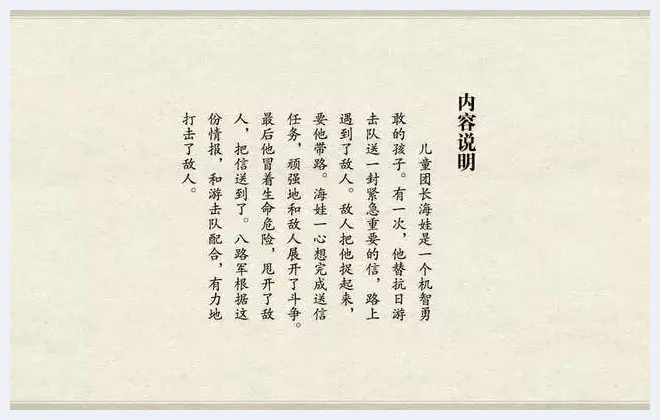 内容说明
儿童团长海娃是一个机智勇
敢的孩子。有一次，他替抗日游
击队送一封紧急重要的信，路上
遇到了敌人。敌人把他捉起来，
要他带路。海娃一心想完成送信
任务，顽强地和敌人展开了斗争。
最后他冒着生命危险，甩开了敌
人，把信送到了。八路军根据这
份情报，和游击队配合，有力地
打击了敌人。